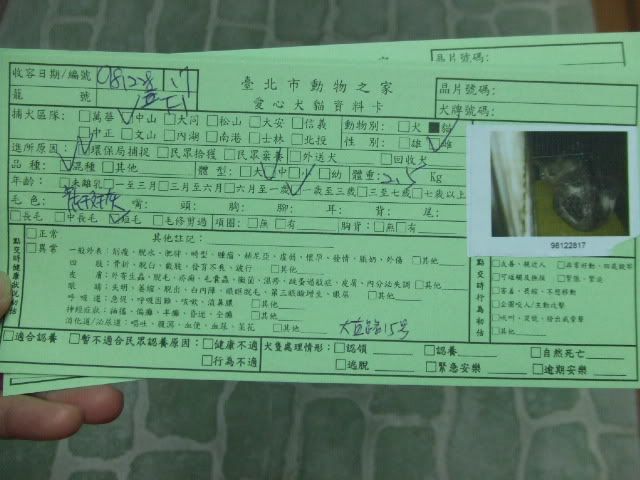 晶片號碼:
收容日期/編號 981228 17
臺北市動物之家
晶片號碼:
籠 號
愛心犬貓資料卡
犬牌號碼:
捕犬區隊: □萬華 ☑中山 □大同 □松山 □大安 □信義 動物別: □犬 ■貓
□中正 □文山 □內湖 □南港 □士林 □北投 性 別: □雄 ☑雌
進所原因: ☑環保局捕捉 □民眾拾獲 □民眾棄養 □外送犬 □回收犬
品種: ☑混種 □其他 體型: □大 ☑中 □小 □幼 體重: 2.5 kg
年齡: □未離乳 □一至三月 □三月至六月 □六月至一歲 ☑一歲至三歲 □三至七歲 □七歲以上
毛色: 嘴: 頭: 胸: 腳: 耳: 背: 尾:
□長毛 □中長毛 ☑短毛 □毛修剪過 項圈: □無 □有 胸背: □無 □有
98122817
點交時健康狀況初估
□正常
□異常
其他註記:
一般外表: 削瘦、脫水、肥胖、畸型、腫瘤、赫尼亞、虛弱、懷孕、發情、脹奶、外傷 □其他
四 肢: 骨折、脫臼、截肢、發育不良、跛行 □其他
皮 膚: 外寄生蟲、脫毛、疥癬、毛囊蟲、黴菌、濕疹、跳蚤過敏症、皮屑、內分泌失調 □其他
眼 睛: 失明、萎縮、脫出、白內障、眼瞼脫毛、第三眼瞼增生、眼屎 □其他
呼 吸 道: 急促、呼吸困難、咳嗽、消鼻膿 □其他
神經症狀: 抽搐、偏癱、半癱、昏迷、全癱 □其他
消化道/泌尿道: 嘔吐、腹瀉、血便、血尿、菜花 □其他
15号
點交時行為初估
□友善、親近人 □非常好動、四處亂竄
□可碰觸及撫摸 □緊張、緊迫
□害羞、畏縮、不想移動
□企圖咬人/主動攻擊
□吠叫、哀號、發出威脅聲
□其他
□適合認養 □暫不適合民眾認養原因: □健康不適 犬隻處理情形: □認領 □認養 □自然死亡
□行為不適 □逃脫 □緊急安樂 □逾期安樂